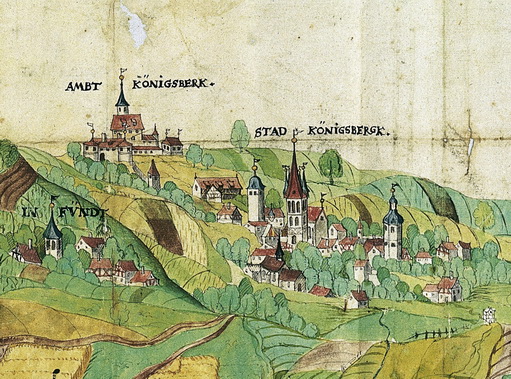 AMBT KÖNIGSBERK.
STAD KÖNIGSBERGK.
IN FÜNDT